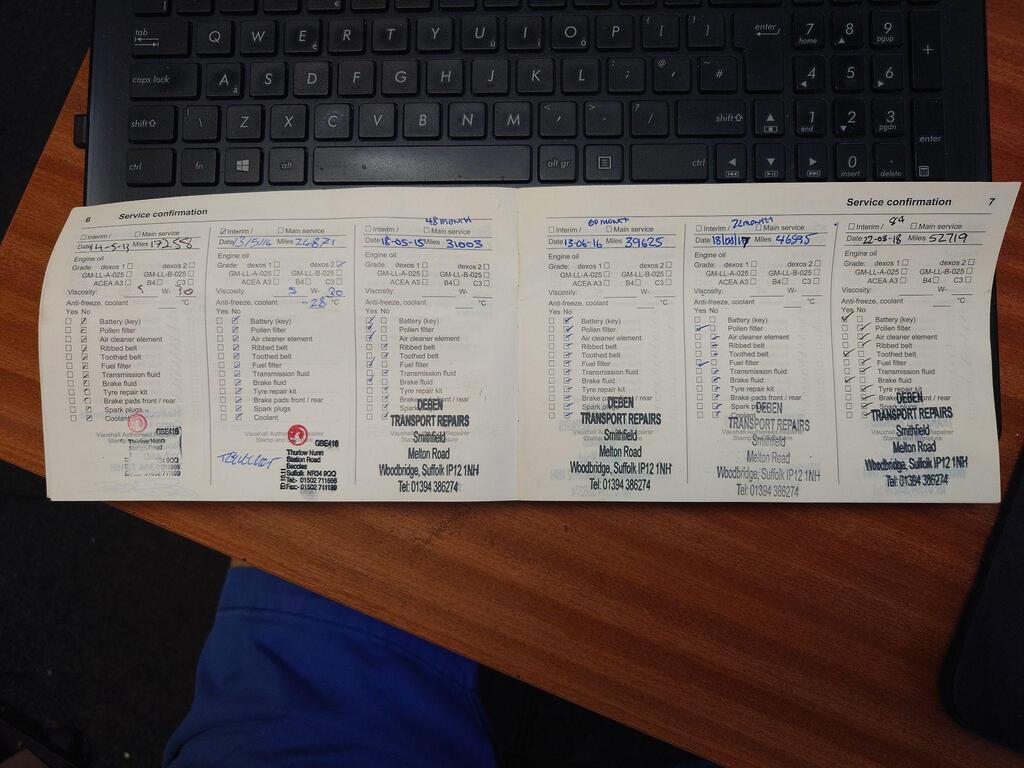 tab Q W E R T Y U I O P [ ] enter 7 home 8 9 pgup +
caps lock A S D F G H J K L ; @ ' ~ # 4 5 6
shift \ Z X C V B N M < , > . ? / shift 1 end 2 3 pgdn enter
ctrl fn alt alt gr ctrl 0 insert . delete
6 Service confirmation
Interim / Main service
Date 14-5-13 Miles 17258
Engine oil
Grade: dexos 1 dexos 2
GM-LL-A-025 GM-LL-B-025
ACEA A3 B4 C3
Viscosity: 5 W- 30
Anti-freeze, coolant °C
Yes No
Battery (key)
Pollen filter
Air cleaner element
Ribbed belt
Toothed belt
Fuel filter
Transmission fluid
Brake fluid
Tyre repair kit
Brake pads front / rear
Spark plugs
Coolant
GBE416
Thurlow Nunn
Station Road
Interim / Main service
Date 13/5/14 Miles 24871
Engine oil
Grade: dexos 1 dexos 2
GM-LL-A-025 GM-LL-B-025
ACEA A3 B4 C3
Viscosity: 5 W- 30
Anti-freeze, coolant -28 °C
Yes No
Battery (key)
Pollen filter
Air cleaner element
Ribbed belt
Toothed belt
Fuel filter
Transmission fluid
Brake fluid
Tyre repair kit
Brake pads front / rear
Spark plugs
Coolant
GBE416
Thurlow Nunn
Station Road
Beccles
Suffolk NR34 9QQ
Tel:- 01502 711666
Fax:- 01502 711199
48 MONTH
Interim / Main service
Date 18-05-15 Miles 31003
Engine oil
Grade: dexos 1 dexos 2
GM-LL-A-025 GM-LL-B-025
ACEA A3 B4 C3
Viscosity: W-
Anti-freeze, coolant °C
Yes No
Battery (key)
Pollen filter
Air cleaner element
Ribbed belt
Toothed belt
Fuel filter
Transmission fluid
Brake fluid
Tyre repair kit
Brake pads front / rear
Spark
DEBEN
TRANSPORT REPAIRS
Smithfield
Melton Road
Woodbridge, Suffolk IP12 1NH
Tel: 01394 386274
Service confirmation 7
60 MONTH
Interim / Main service
Date 13-06-16 Miles 39625
Engine oil
Grade: dexos 1 dexos 2
GM-LL-A-025 GM-LL-B-025
ACEA A3 B4 C3
Viscosity: W-
Anti-freeze, coolant °C
Yes No
Battery (key)
Pollen filter
Air cleaner element
Ribbed belt
Toothed belt
Fuel filter
Transmission fluid
Brake fluid
Tyre repair kit
Brake pads front / rear
Spark
DEBEN
TRANSPORT REPAIRS
Smithfield
Melton Road
Woodbridge, Suffolk IP12 1NH
Tel: 01394 386274
72 MONTH
Interim / Main service
Date 18/08/17 Miles 46595
Engine oil
Grade: dexos 1 dexos 2
GM-LL-A-025 GM-LL-B-025
ACEA A3 B4 C3
Viscosity: W-
Anti-freeze, coolant °C
Yes No
Battery (key)
Pollen filter
Air cleaner element
Ribbed belt
Toothed belt
Fuel filter
Transmission fluid
Brake fluid
Tyre repair kit
Brake pads front / rear
Spark
DEBEN
TRANSPORT REPAIRS
Smithfield
Melton Road
Woodbridge, Suffolk IP12 1NH
Tel: 01394 386274
84
Interim / Main service
Date 22-08-18 Miles 52719
Engine oil
Grade: dexos 1 dexos 2
GM-LL-A-025 GM-LL-B-025
ACEA A3 B4 C3
Viscosity: W-
Anti-freeze, coolant °C
Yes No
Battery (key)
Pollen filter
Air cleaner element
Ribbed belt
Toothed belt
Fuel filter
Transmission fluid
Brake fluid
Tyre repair kit
Brake pads front / rear
DEBEN
TRANSPORT REPAIRS
Smithfield
Melton Road
Woodbridge, Suffolk IP12 1NH
Tel: 01394 386274